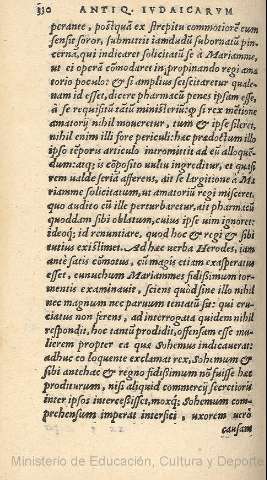 330 ANTIQ. IVDAICARVM
perante, postquã ex strepitu commotiorẽ eum
sensit soror, submittit iamdudũ subornatũ pin-
cernã, qui indicaret solicitatũ se à Mariamme,
ut ei operã cõmodaret in propinando regi ama
torio poculo: & si amplius sciscitaretur qual-
nam id esset, dicere pharmacũ penes ipsam esse,
à se requisitũ tãtũ ministeriũ: q̃ si rex mẽtione
amatorij nihil moueretur, tum & ipse sileret,
nihil enim illi fore periculi: hac præd oculum illo
ipso tẽporis articulo intromittit ad eũ alloquẽ-
dum: atq; is cõposito uultu ingreditur, et quasi
rem ualde seriã afferens, ait se largitione à Ma
riamme solicitatum, ut amatoriũ regi misceret,
quo audito cũ ille perturbaretur, ait pharmacũ
quoddam sibi oblatum, cuius ipse uim ignoret:
ideoq; id renuntiare, quod hoc & regi & sibi
tutius existimet. Ad hæc uerba Herodes, iam
antè satis cõmotus, cũ magis etiam exasperatus
esset, eunuchum Mariammes fidissimum tor-
mentis examinauit, sciens quòd sine illo nihil
nec magnum nec paruum tentatũ sit: qui cru-
ciatus non ferens, ad interrogata quidem nihil
respondit, hoc tantũ prodidit, offensam esse mu-
lierem propter ea quæ Sohemus indicauerat:
adhuc eo loquente exclamat rex, Sohemum &
sibi antehac & regno fidissimum nõ fuisse hæc
proditurum, nisi aliquid commercij secretioris
inter ipsos intercessisset, moxq; Sohemum com-
prehensum imperat interfici, uxorem uerò
causam
Ministerio de Educación, Cultura y Deporte